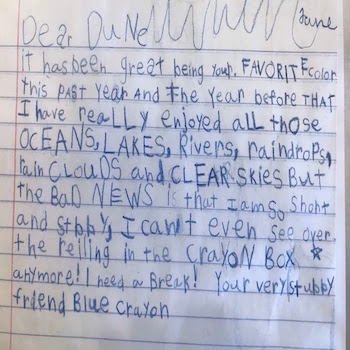 Dear DuNe June
it has been great being your. FAVORITE color
this PAST Year AND THE Year before THAT
I have reaLLY enjoyed aLL those
OCEANS, LAKES, Rivers, raindrops,
rain CLOUDS and CLEAR SKIES But
the BaD NEWS is that I am So Short
and stbby, I can't even see over.
the reiling in the CrAYON BOX
anymore! I need a Break! Your very stubby
friend Blue Crayon